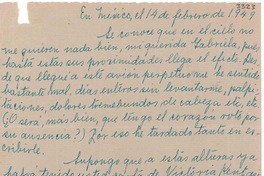 3323
En México, el 14 de febrero de 1949
Se conoce que en el cielo no
me quieren nada bien, mi querida Gabriela, pues
hasta estas sus proximidades llega el efecto. Des-
de que llegué a este avión perpetuo me he sentido
bastante mal, días enteros sin levantarme, palpi-
taciones, dolores tremebundos de cabeza etc, etc
(¿O será, más bien, que tengo el corazón roto por
su ausencia?) Por eso he tardado tanto en es-
cribirle.
Supongo que a estas alturas ya
habrá tenido usted de Victoria Kent